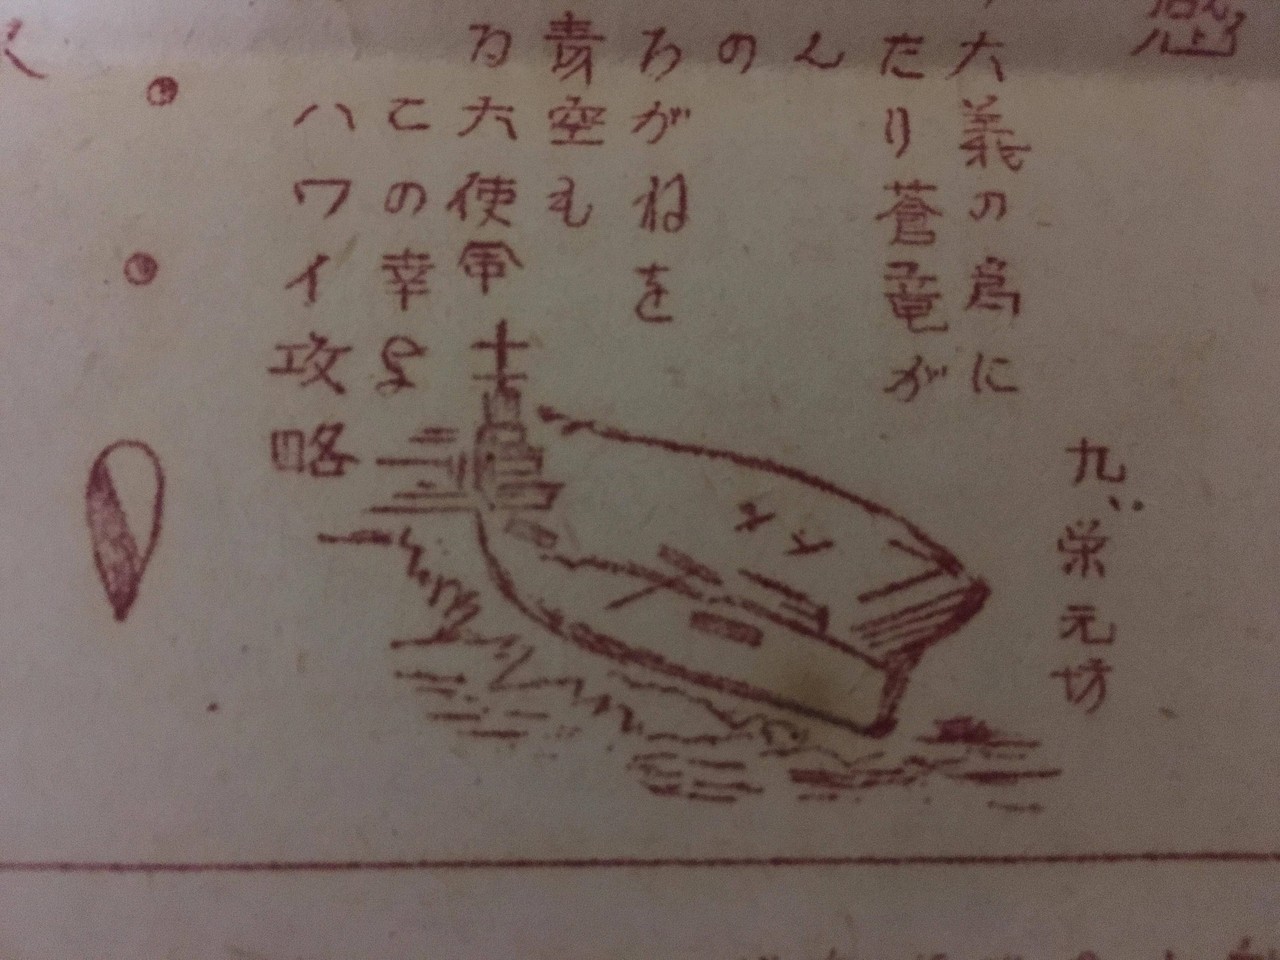 感
九、栄元坊
大義の為に
たり蒼竜が
ん
の
ろがねを
青空も
る大使命
この幸よ
ハワイ攻略